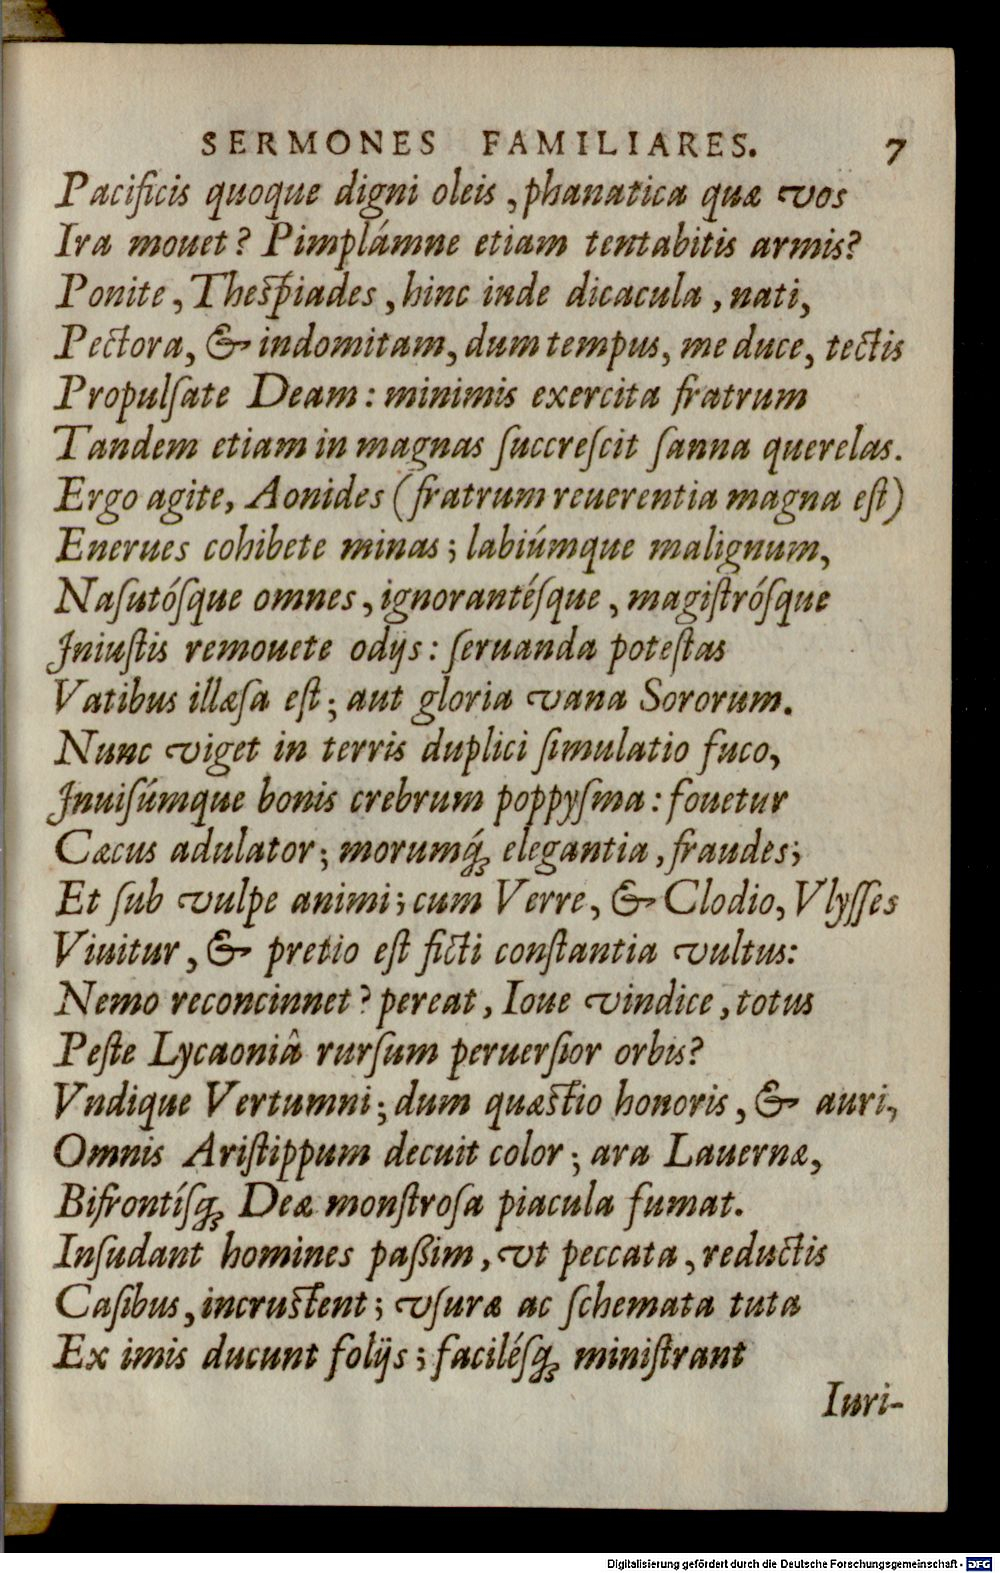 SERMONES FAMILIARES. 7
Pacificis quoque digni oleis, phanatica quæ vos
Ira mouet? Pimplámne etiam tentabitis armis?
Ponite, Thespiades, hinc inde dicacula, nati,
Pectora, & indomitam, dum tempus, me duce, tectis
Propulſate Deam: minimis exercita fratrum
Tandem etiam in magnas ſuccreſcit ſanna querelas.
Ergo agite, Aonides (fratrum reuerentia magna eſt)
Enerues cohibete minas; labiúmque malignum,
Naſutóſque omnes, ignorantéſque, magiſtróſque
Iniuſtis remouete odijs: ſeruanda poteſtas
Vatibus illæſa eſt; aut gloria vana Sororum.
Nunc viget in terris duplici ſimulatio fuco,
Inuiſúmque bonis crebrum poppyſma: fouetur
Cæcus adulator; morumq́ꝫ elegantia, fraudes;
Et ſub vulpe animi; cum Verre, & Clodio, Vlyſſes
Viuitur, & pretio eſt ficti conſtantia vultus:
Nemo reconcinnet? pereat, Ioue vindice, totus
Peſte Lycaoniâ rurſum peruerſior orbis?
Vndique Vertumni; dum quæſtio honoris, & auri,
Omnis Ariſtippum decuit color; ara Lauernæ,
Bifrontíſqꝫ Deæ monſtroſa piacula fumat.
Inſudant homines paßim, vt peccata, reductis
Caſibus, incruſtent; vſuræ ac ſchemata tuta
Ex imis ducunt folijs; faciléſqꝫ miniſtrant
Iuri-
Digitalisierung gefördert durch die Deutsche Forschungsgemeinschaft - DFG